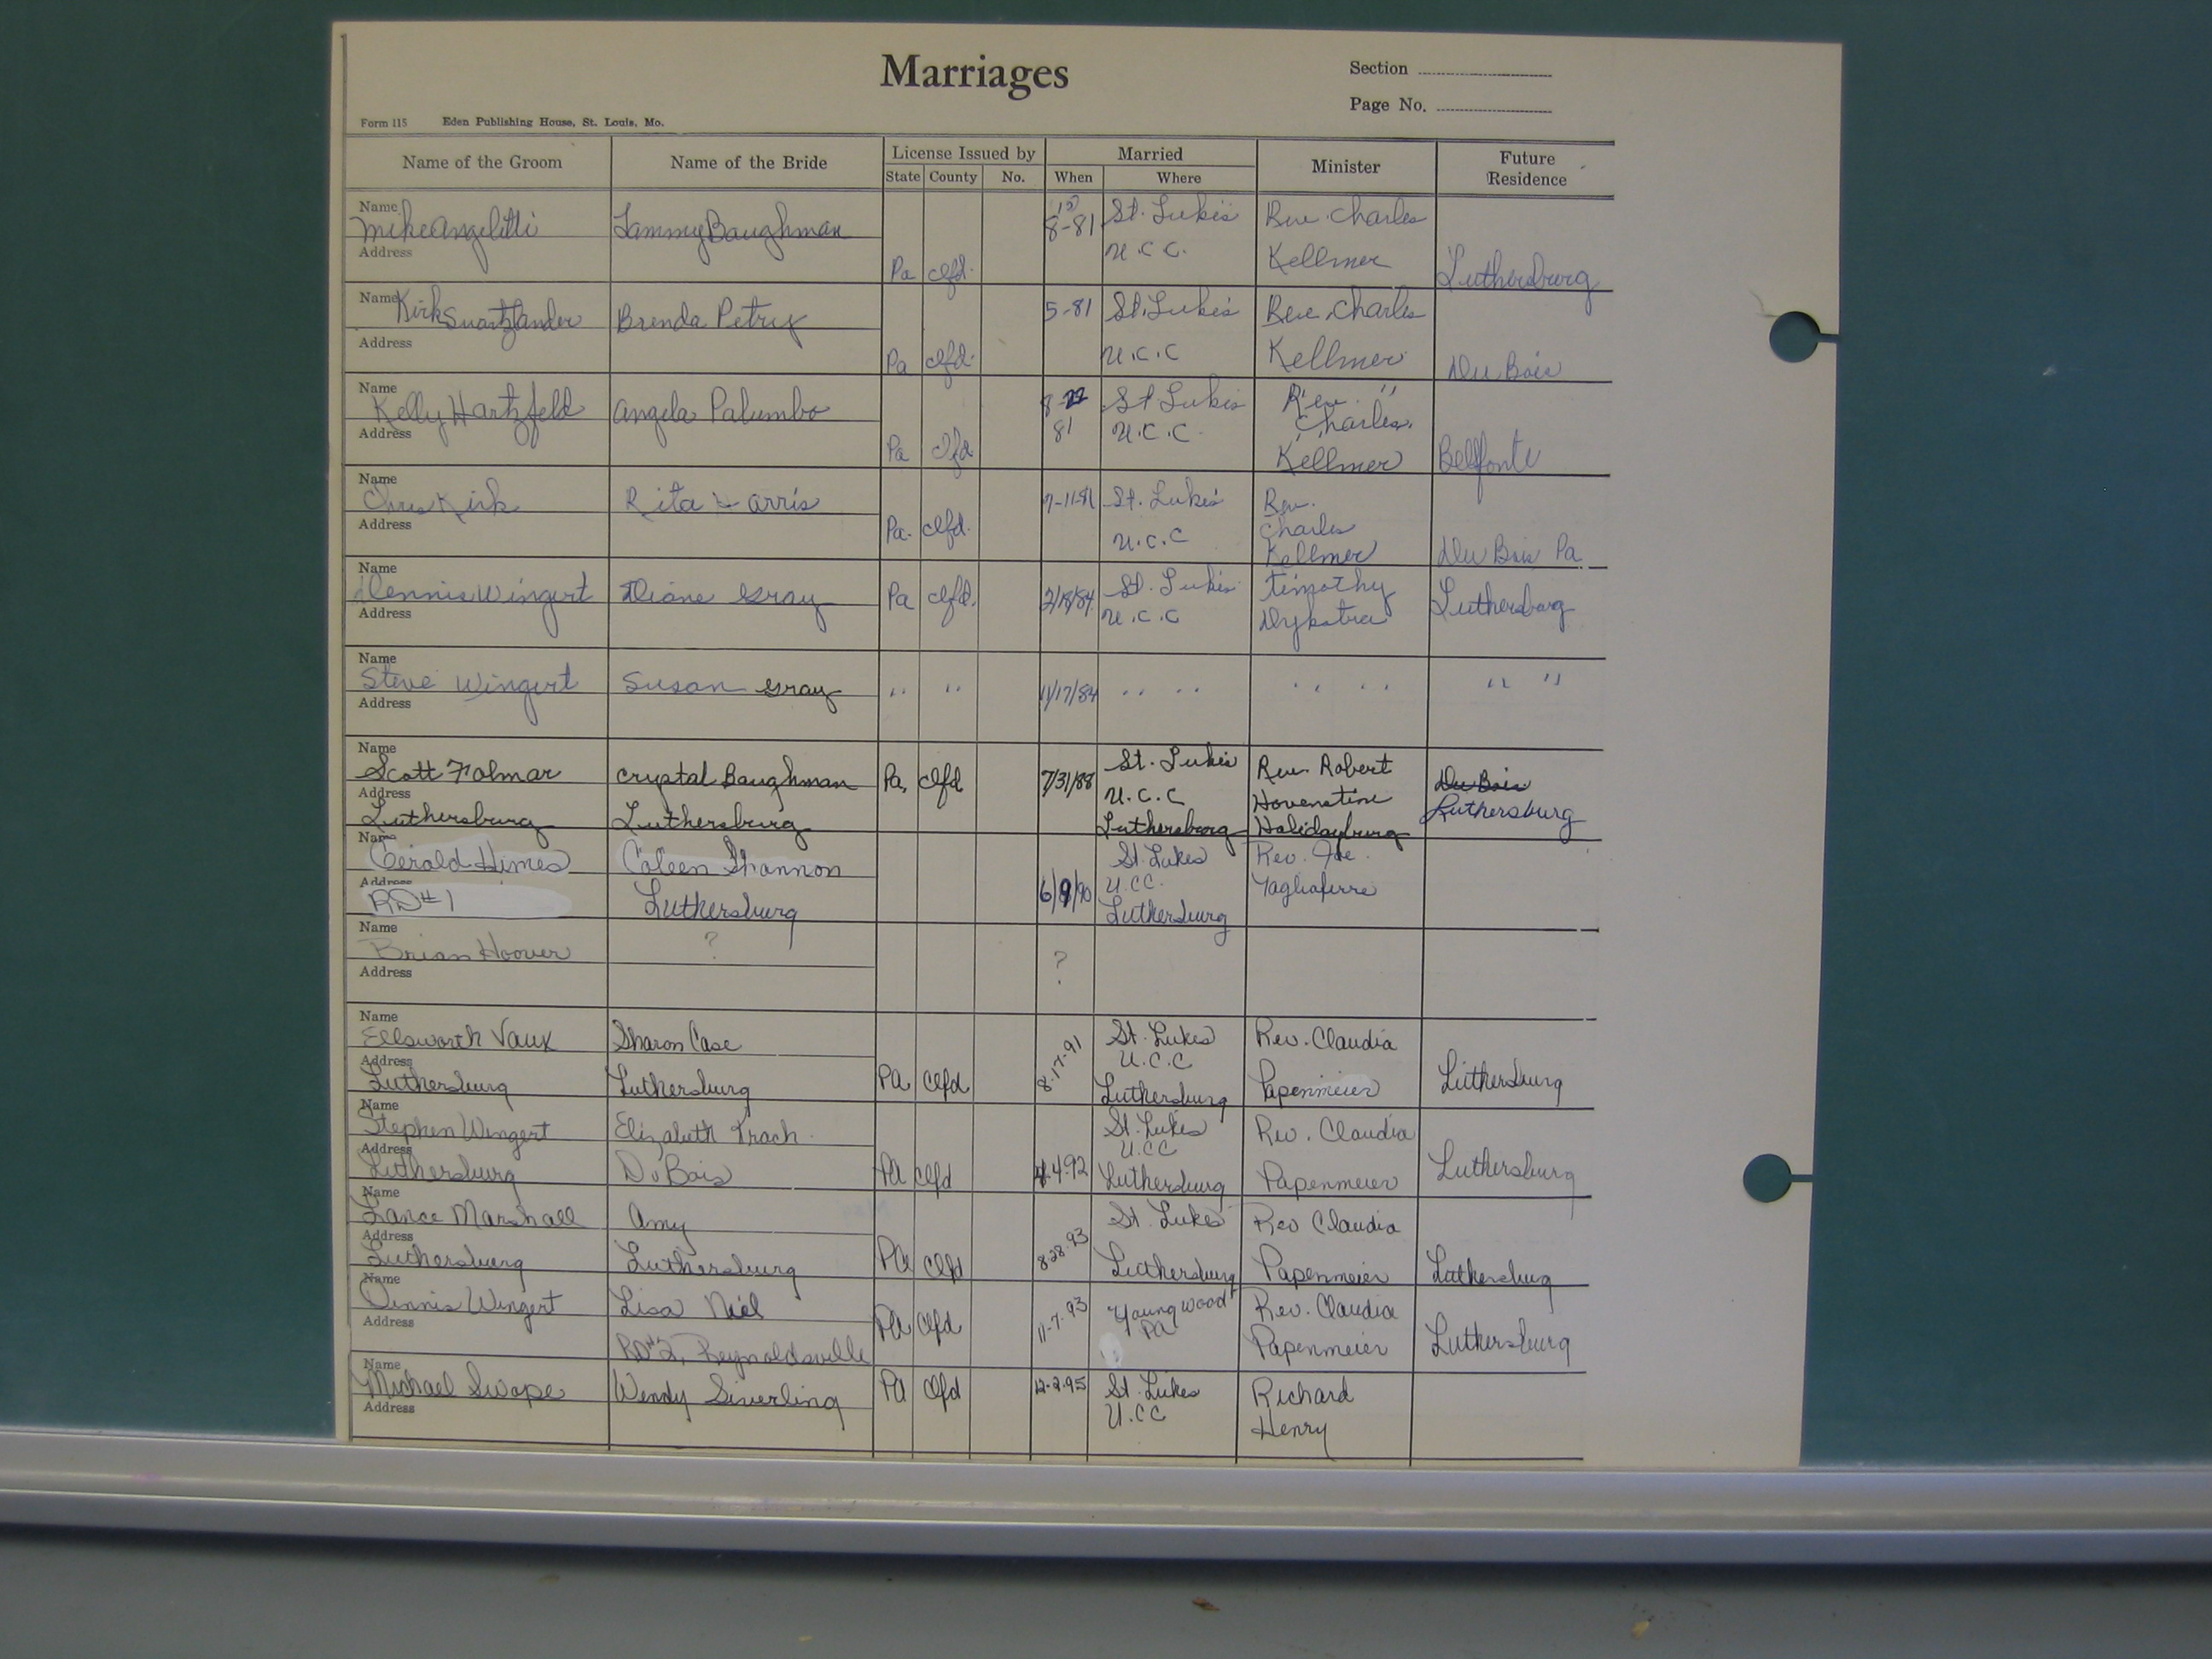 Marriages
Section
Page No.
Form 115 Eden Publishing House, St. Louis, Mo.
Name of the Groom Name of the Bride License Issued by Married Minister Future Residence
State County No. When Where
Name Mike Angeletti Tammy Baughman 8-81 St. Luke's Rev. Charles
Address Pa Clfd. U.C.C. Kellmer Luthersburg
Name Kirk Swartzlander Brenda Petry 5-81 St. Luke's Rev. Charles
Address Pa Clfd. U.C.C Kellmer Du Bois
Name Kelly Hartzfeld Angela Palumbo 8-22 St Luke's Rev. "
Address 81 U.C.C. Charles
Pa Clfd Kellmer Bellfonte
Name Chris Kirk Rita Harris 7-11-81 St. Luke's Rev.
Address Pa. Clfd. U.C.C Charles
Kellmer Du Bois Pa.
Name Dennis Wingert Diane Gray Pa Clfd. 2/18/84 St. Luke's Timothy Luthersburg
Address U.C.C Dykstra
Name Steve Wingert Susan Gray " " 11/17/84 " " " " " "
Address
Name Scott Folmar Crystal Baughman Pa, Clfd 7/31/88 St. Luke's Rev. Robert Du Bois
Address U.C.C Hovenstine Luthersburg
Luthersburg Luthersburg Luthersburg Holidayburg
Name Gerald Himes Coleen Shannon St. Lukes Rev. Joe
Address 6/9/90 U.CC. Tagliaferre
RD#1 Luthersburg Luthersburg
Name Brian Hoover ? ?
Address
Name Ellsworth Vaux Sharon Case 8-17-91 St. Lukes Rev. Claudia
Address U.C.C
Luthersburg Luthersburg PA Clfd Luthersburg Papenmeier Luthersburg
Name Stephen Wingert Elizabeth Trach St. Lukes Rev. Claudia
Address U.CC
Luthersburg DuBois PA Clfd 4-4-92 Luthersburg Papenmeier Luthersburg
Name Lance Marshall Amy St. Lukes Rev Claudia
Address
Luthersburg Luthersburg PA Clfd 8-28-93 Luthersburg Papenmeier Luthersburg
Name Dennis Wingert Lisa Niel PA Clfd 11-7-93 Youngwood Rev. Claudia
Address PA
RD#2, Reynoldsville Papenmeier Luthersburg
Name Michael Swope Wendy Siverling PA Clfd 12-2-95 St. Lukes Richard
Address U.CC Henry